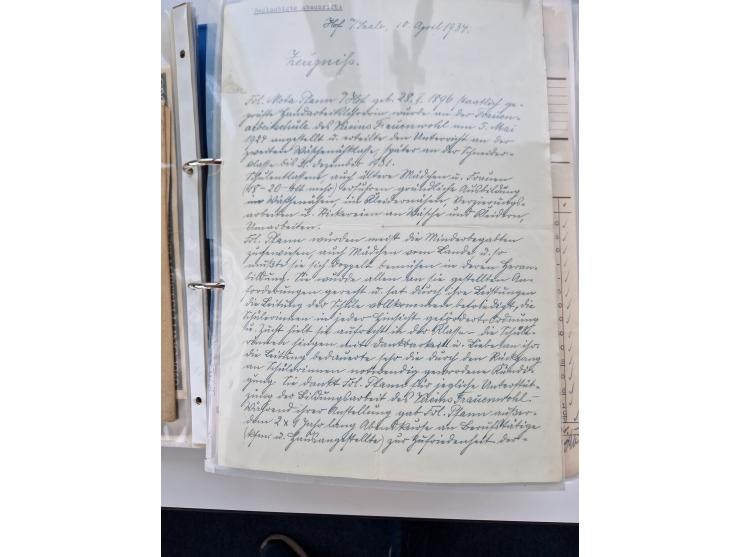 Beglaubigte Abschrift
Hof /Saale, 10. April 1934.
Zeugniss.
Frl. Meta Plann /Hof geb. 28. 1896 staatlich ge-
prüfte Handarbeitslehrerin, wurde an der Frauen-
arbeitsschule des Vereins Frauenwohl am 5. Mai
angestellt u. erteilte den Unterricht an der
zweiten Wäschenähklasse, später an der Schneider-
klasse bis 31. Dezember 1931.
Schülerklassen, auch ältere Mädchen u. Frauen
(18-20- oft mehr) erfuhren gründliche Ausbildung
im Wäschenähen, im Kleidernähen, Verzierungs-
arbeiten u. Stickereien an Wäsche und Kleidern,
Umarbeiten.
Frl. Plann wurden meist die Minderbegabten
zugewiesen, auch Mädchen vom Lande u. so
mußte sie sich doppelt bemühen in deren Heran-
bildung. Sie wurde allen an sie gestellten An-
forderungen gerecht u. hat durch ihre Leistungen
die Leitung der Schule vollkommen befriedigt, die
Schülerinnen in jeder Hinsicht gefördert. Ordnung
u. Zucht hielt sie aufrecht in der Klasse - die Schüle-
rinnen hingen mit Dankbarkeit u. Liebe an ihr.
die Leitung bedauerte sehr die durch den Rückgang
an Schülerinnen notwendig gewordene Kündi-
gung. Sie dankt Frl. Plann für jegliche Unterstüt-
zung der Bildungsarbeit des Vereins Frauenwohl -
Während ihrer Anstellung gab Frl. Plann außer-
dem 2 x Jahr lang Abendkurse an Berufstätige
(u. Hausangestellte) zur Zufriedenheit der-